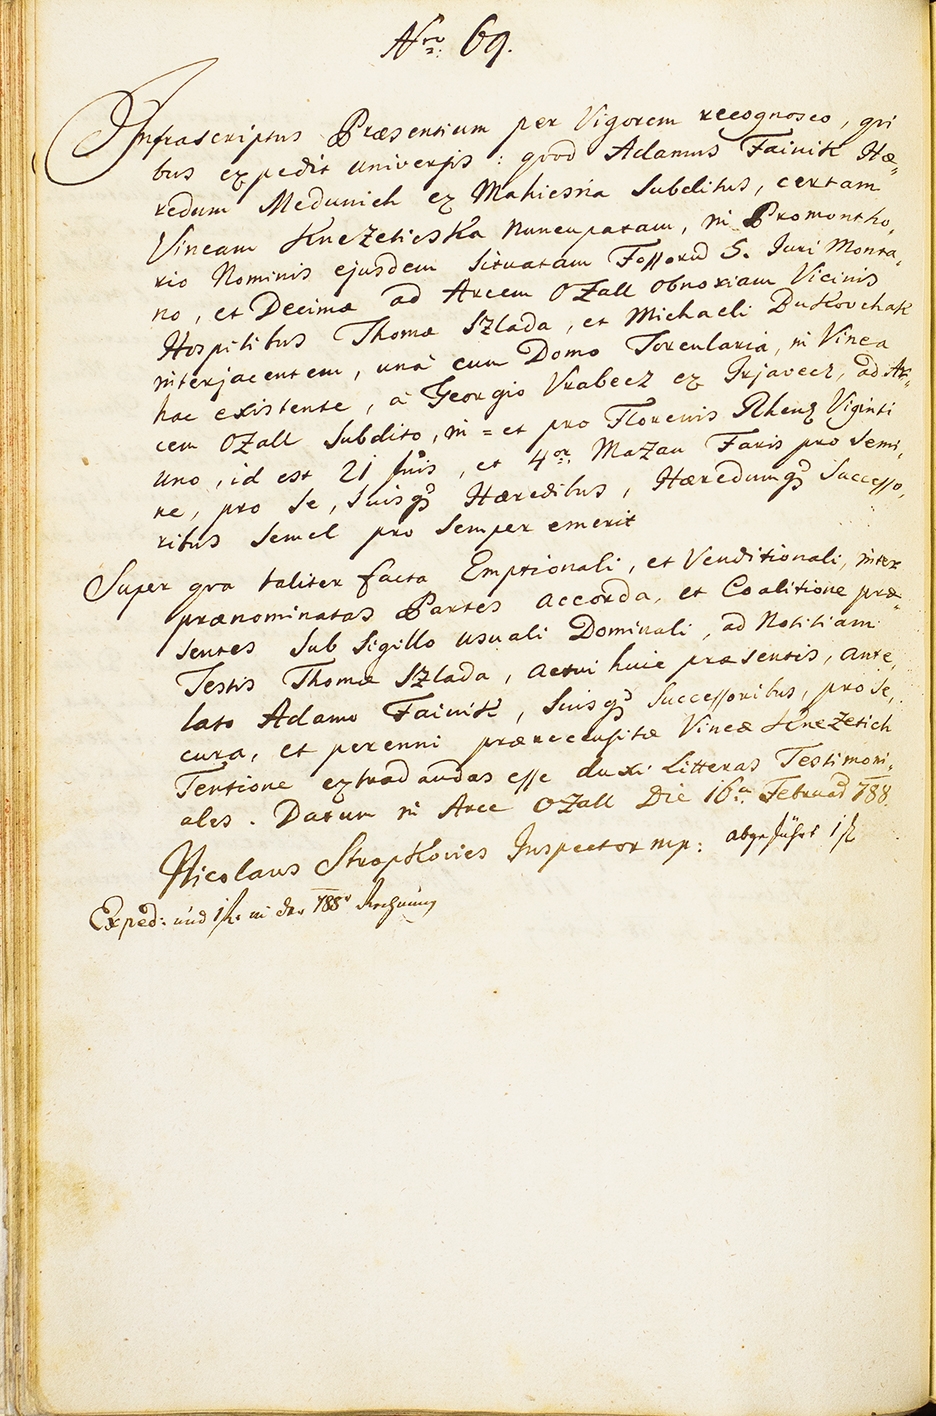 Nro: 69.
Infrascriptus Præsentium per Vigorem recognosco, qui
bus expedit universis: quod Adamus Fainik Hæ=
redum Medunich ex Mahiesna Subditus, certam
Vineam Knezeticska nuncupatam, in Promontho,
rio Nominis ejusdem situatam Fossorũ 5. Juri Monta,
no, et Decimæ ad Arcem Ozall obnoxiam Vicinis
Hospitibus Thoma Szlada, et Michaeli Bukovchak
interjacentem, unà cum Domo Torcularia, in Vinea
hac existente, à Georgio Vrabecz ex Jrjavecz, ad Ar=
cem Ozall Subdito, in = et pro Florenis Rhenz Viginti
uno, id est 21 fnis, et 4or. Mazan Faris pro Semi,
ne, pro se, suisqз Hæredibus, Hæredumqз Successo,
ribus semel pro semper emerit
Super qva taliter facta Emptionali, et Venditionali, inter
prænominatas Partes accorda, et Coalitione præ=
sentes sub Sigillo usuali Dominali, ad Notitiam
Testis Thomæ Szlada, actui huic præsentis, ante,
lato Adamo Fainik, suisqз Successoribus, pro se,
cura, et perenni prærecensitæ Vineæ Knezetich
Tentione extradandas esse duxi Litteras Testimoni,
ales. Datum in Arce Ozall Die 16a. Februarÿ 788.
Nicolaus Stropkovics Inspector mp: abgeführt 1 f
Exped: und 1 f. in der 788r Rechnung